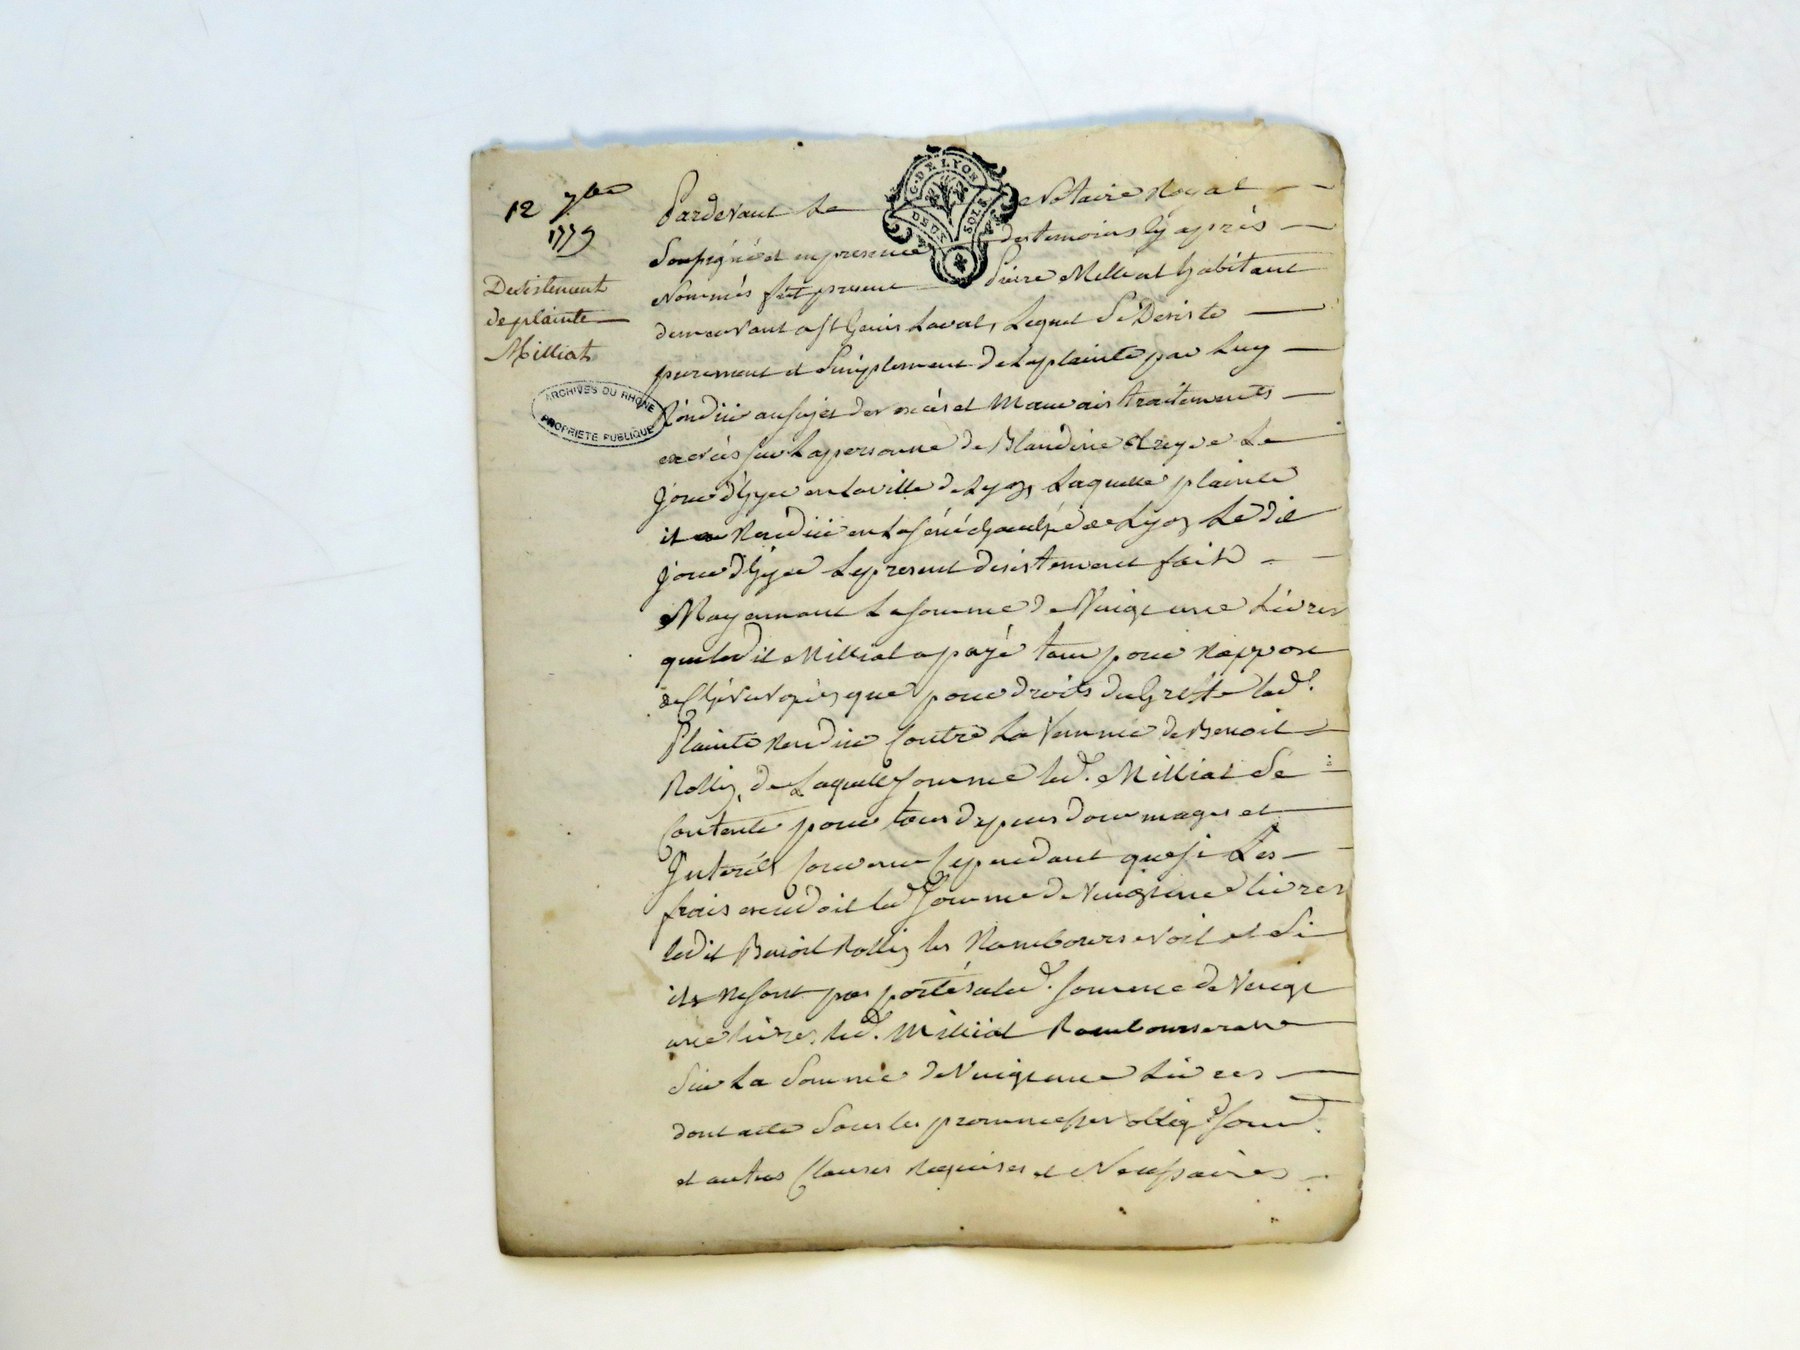 12 7bre
1779
Desistement
de plainte
Milliat
ARCHIVES DU RHÔNE
PROPRIETE PUBLIQUE
G. DE LYON
DEUX SOLS
Pardevant Le Notaire Royal
Soussigné et en presence des temoins cy après
Nommés fut present Pierre Milliat habitant
demeurant a St Genis Laval, Lequel Se Desiste
purement et Simplement de La plainte par Luy
Rendüe au sujet des excès et Mauvais traitements
exercés sur La personne de Blandine Le
jour d'hyer en La ville de Lyon, Laquelle plainte
il a Rendüe en La sénéchaussée de Lyon Le dit
jour d'hyer Le present desistement fait
Moyennant La somme de Vingt une Livres
que ledit Milliat a payé tant pour Rapport
de Chirurgien que pour droits du Greffe lad.
Plainte Rendüe Contre La femme de Benoit
Rollin, de Laquelle somme led. Milliat Se
Contente pour tous depens dommages et
Interêts Convenu Cependant que si Les
frais excedoit lad. somme de Vingt une livres
ledit Benoit Rollin les Rembourseroit et Si
ils ne sont pas portés a lad. somme de Vingt
une livres, led. Milliat Remboursera
Sur La Somme de Vingt une Livres
dont acte Sous les promesses oblig.
et autres Clauses Requises et Necessaires